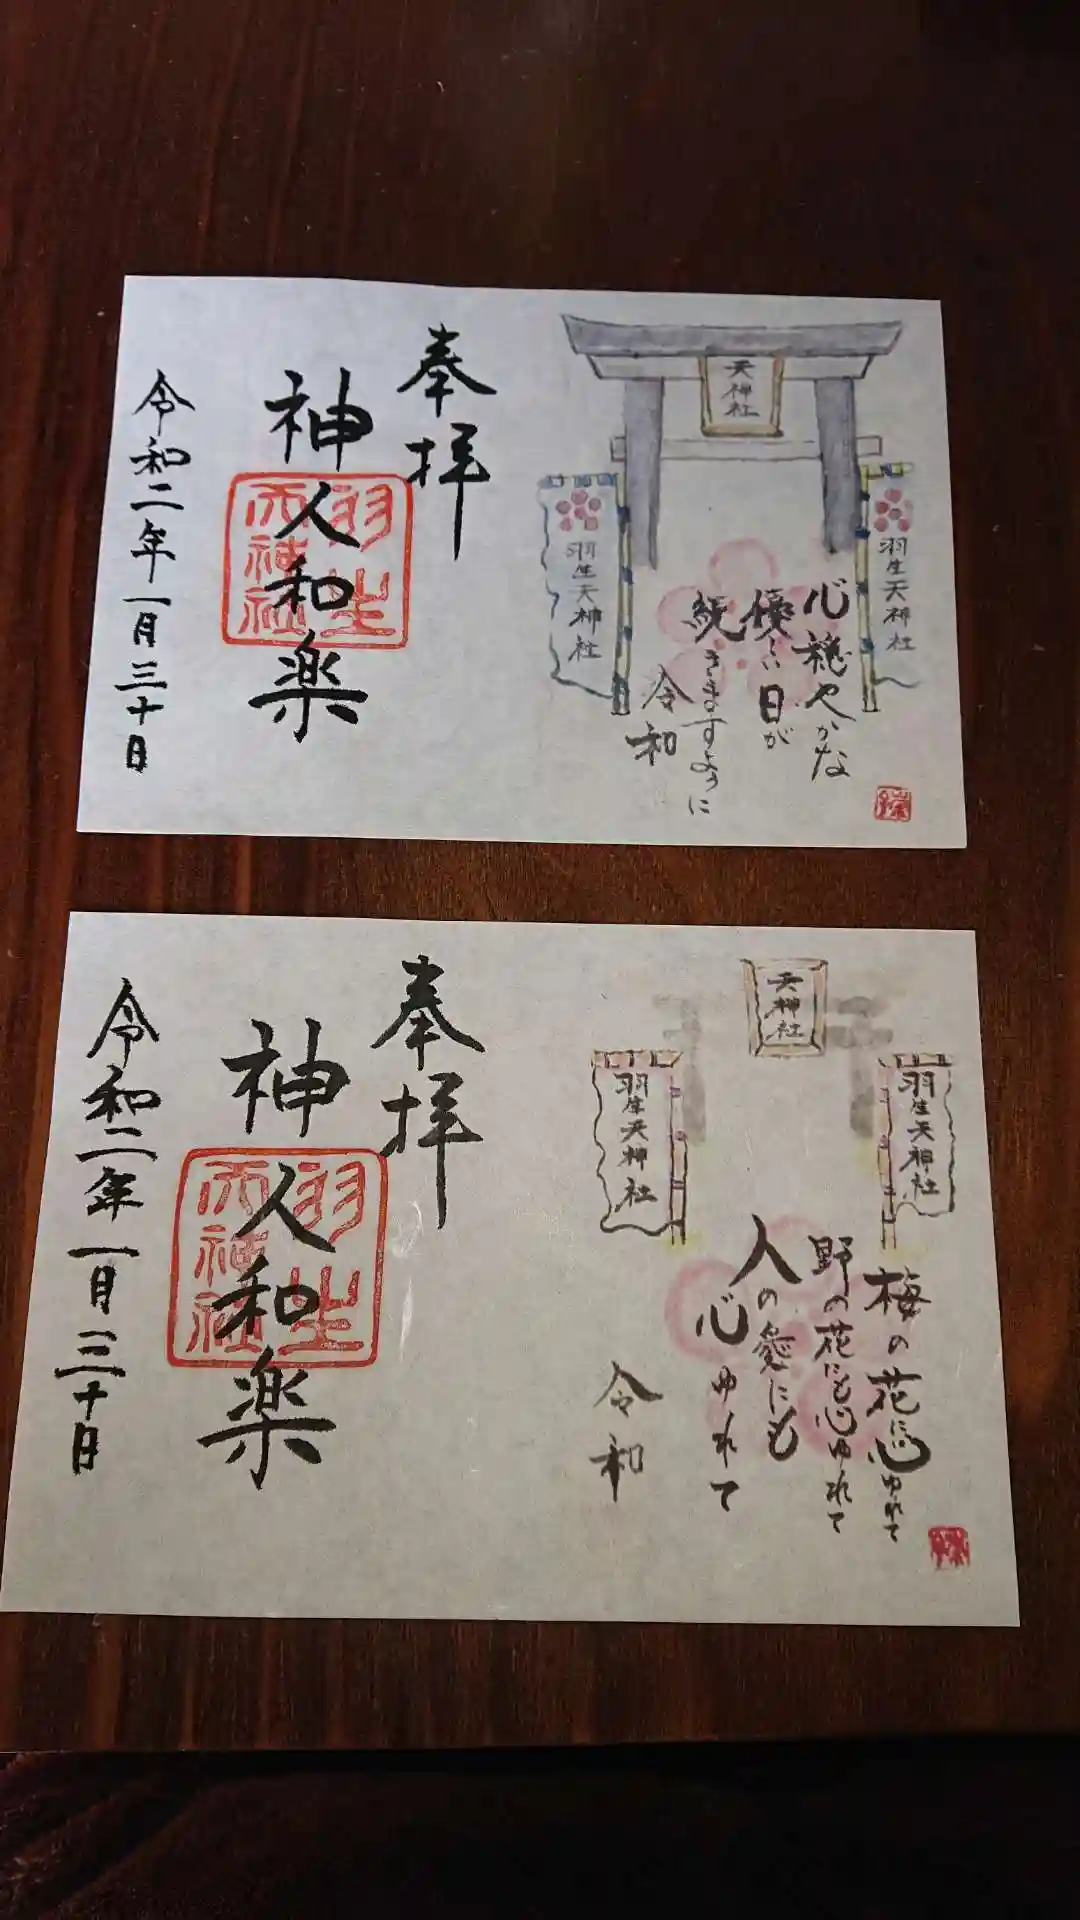 奉拝
神人和楽
羽生
天神社
令和二年一月三十日
天神社
羽生天神社
羽生天神社
心穏やかな
優しい日が
続きますように
令和
奉拝
神人和楽
羽生
天神社
令和二年一月三十日
天神社
羽生天神社
羽生天神社
梅の花に心ゆれて
野の花にも心ゆれて
人の愛にも
心ゆれて
令和